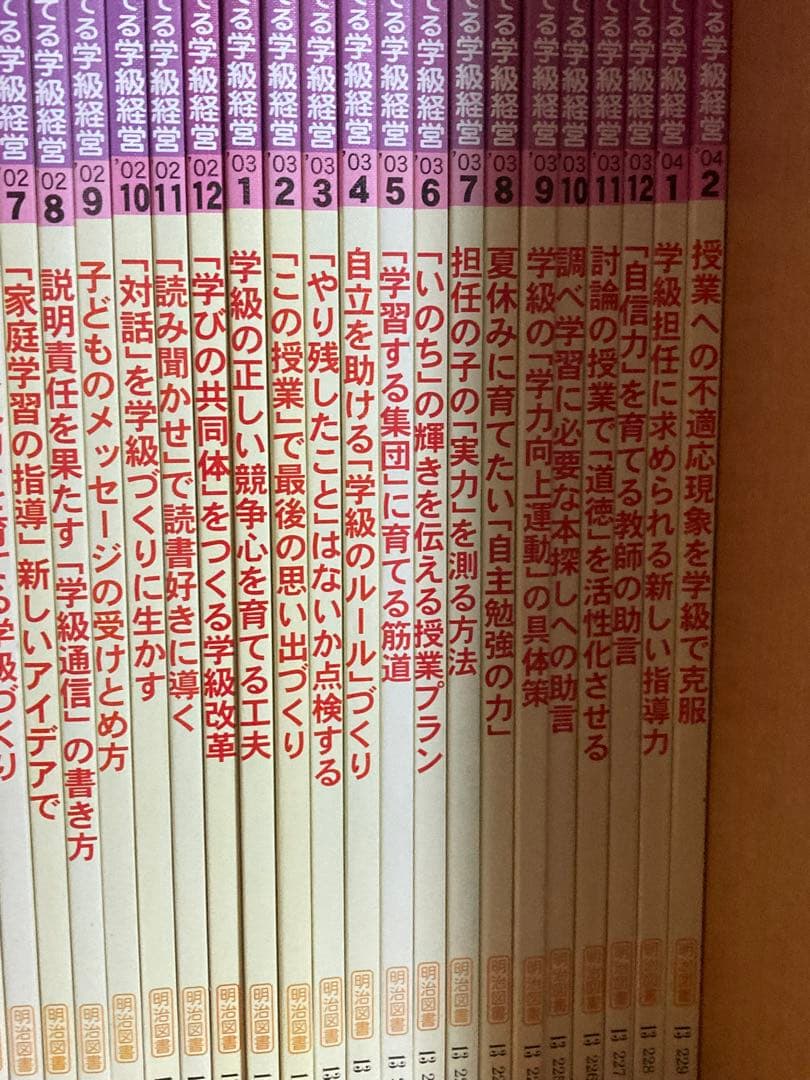 てる学級経営 '02 7 「家庭学習の指導」新しいアイデアで 明治図書
てる学級経営 '02 8 説明責任を果たす「学級通信」の書き方 明治図書
てる学級経営 '02 9 子どものメッセージの受けとめ方 明治図書
てる学級経営 '02 10 「対話」を学級づくりに生かす 明治図書
てる学級経営 '02 11 「読み聞かせ」で読書好きに導く 明治図書
てる学級経営 '02 12 「学びの共同体」をつくる学級改革 明治図書
てる学級経営 '03 1 学級の正しい競争心を育てる工夫 明治図書
てる学級経営 '03 2 「この授業」で最後の思い出づくり 明治図書
てる学級経営 '03 3 「やり残したこと」はないか点検する 明治図書
てる学級経営 '03 4 自立を助ける「学級のルール」づくり 明治図書 13
てる学級経営 '03 5 「学習する集団」に育てる筋道 明治図書 13
てる学級経営 '03 6 「いのち」の輝きを伝える授業プラン 明治図書 13
てる学級経営 '03 7 担任の子の「実力」を測る方法 明治図書 13
てる学級経営 '03 8 夏休みに育てたい「自主勉強の力」 明治図書 13
てる学級経営 '03 9 学級の「学力向上運動」の具体策 明治図書 13
てる学級経営 '03 10 調べ学習に必要な本探しへの助言 明治図書 13
てる学級経営 '03 11 討論の授業で「道徳」を活性化させる 明治図書 13 226
てる学級経営 '03 12 「自信力」を育てる教師の助言 明治図書 13 227
てる学級経営 '04 1 学級担任に求められる新しい指導力 明治図書 13 228
てる学級経営 '04 2 授業への不適応現象を学級で克服 明治図書 13 229